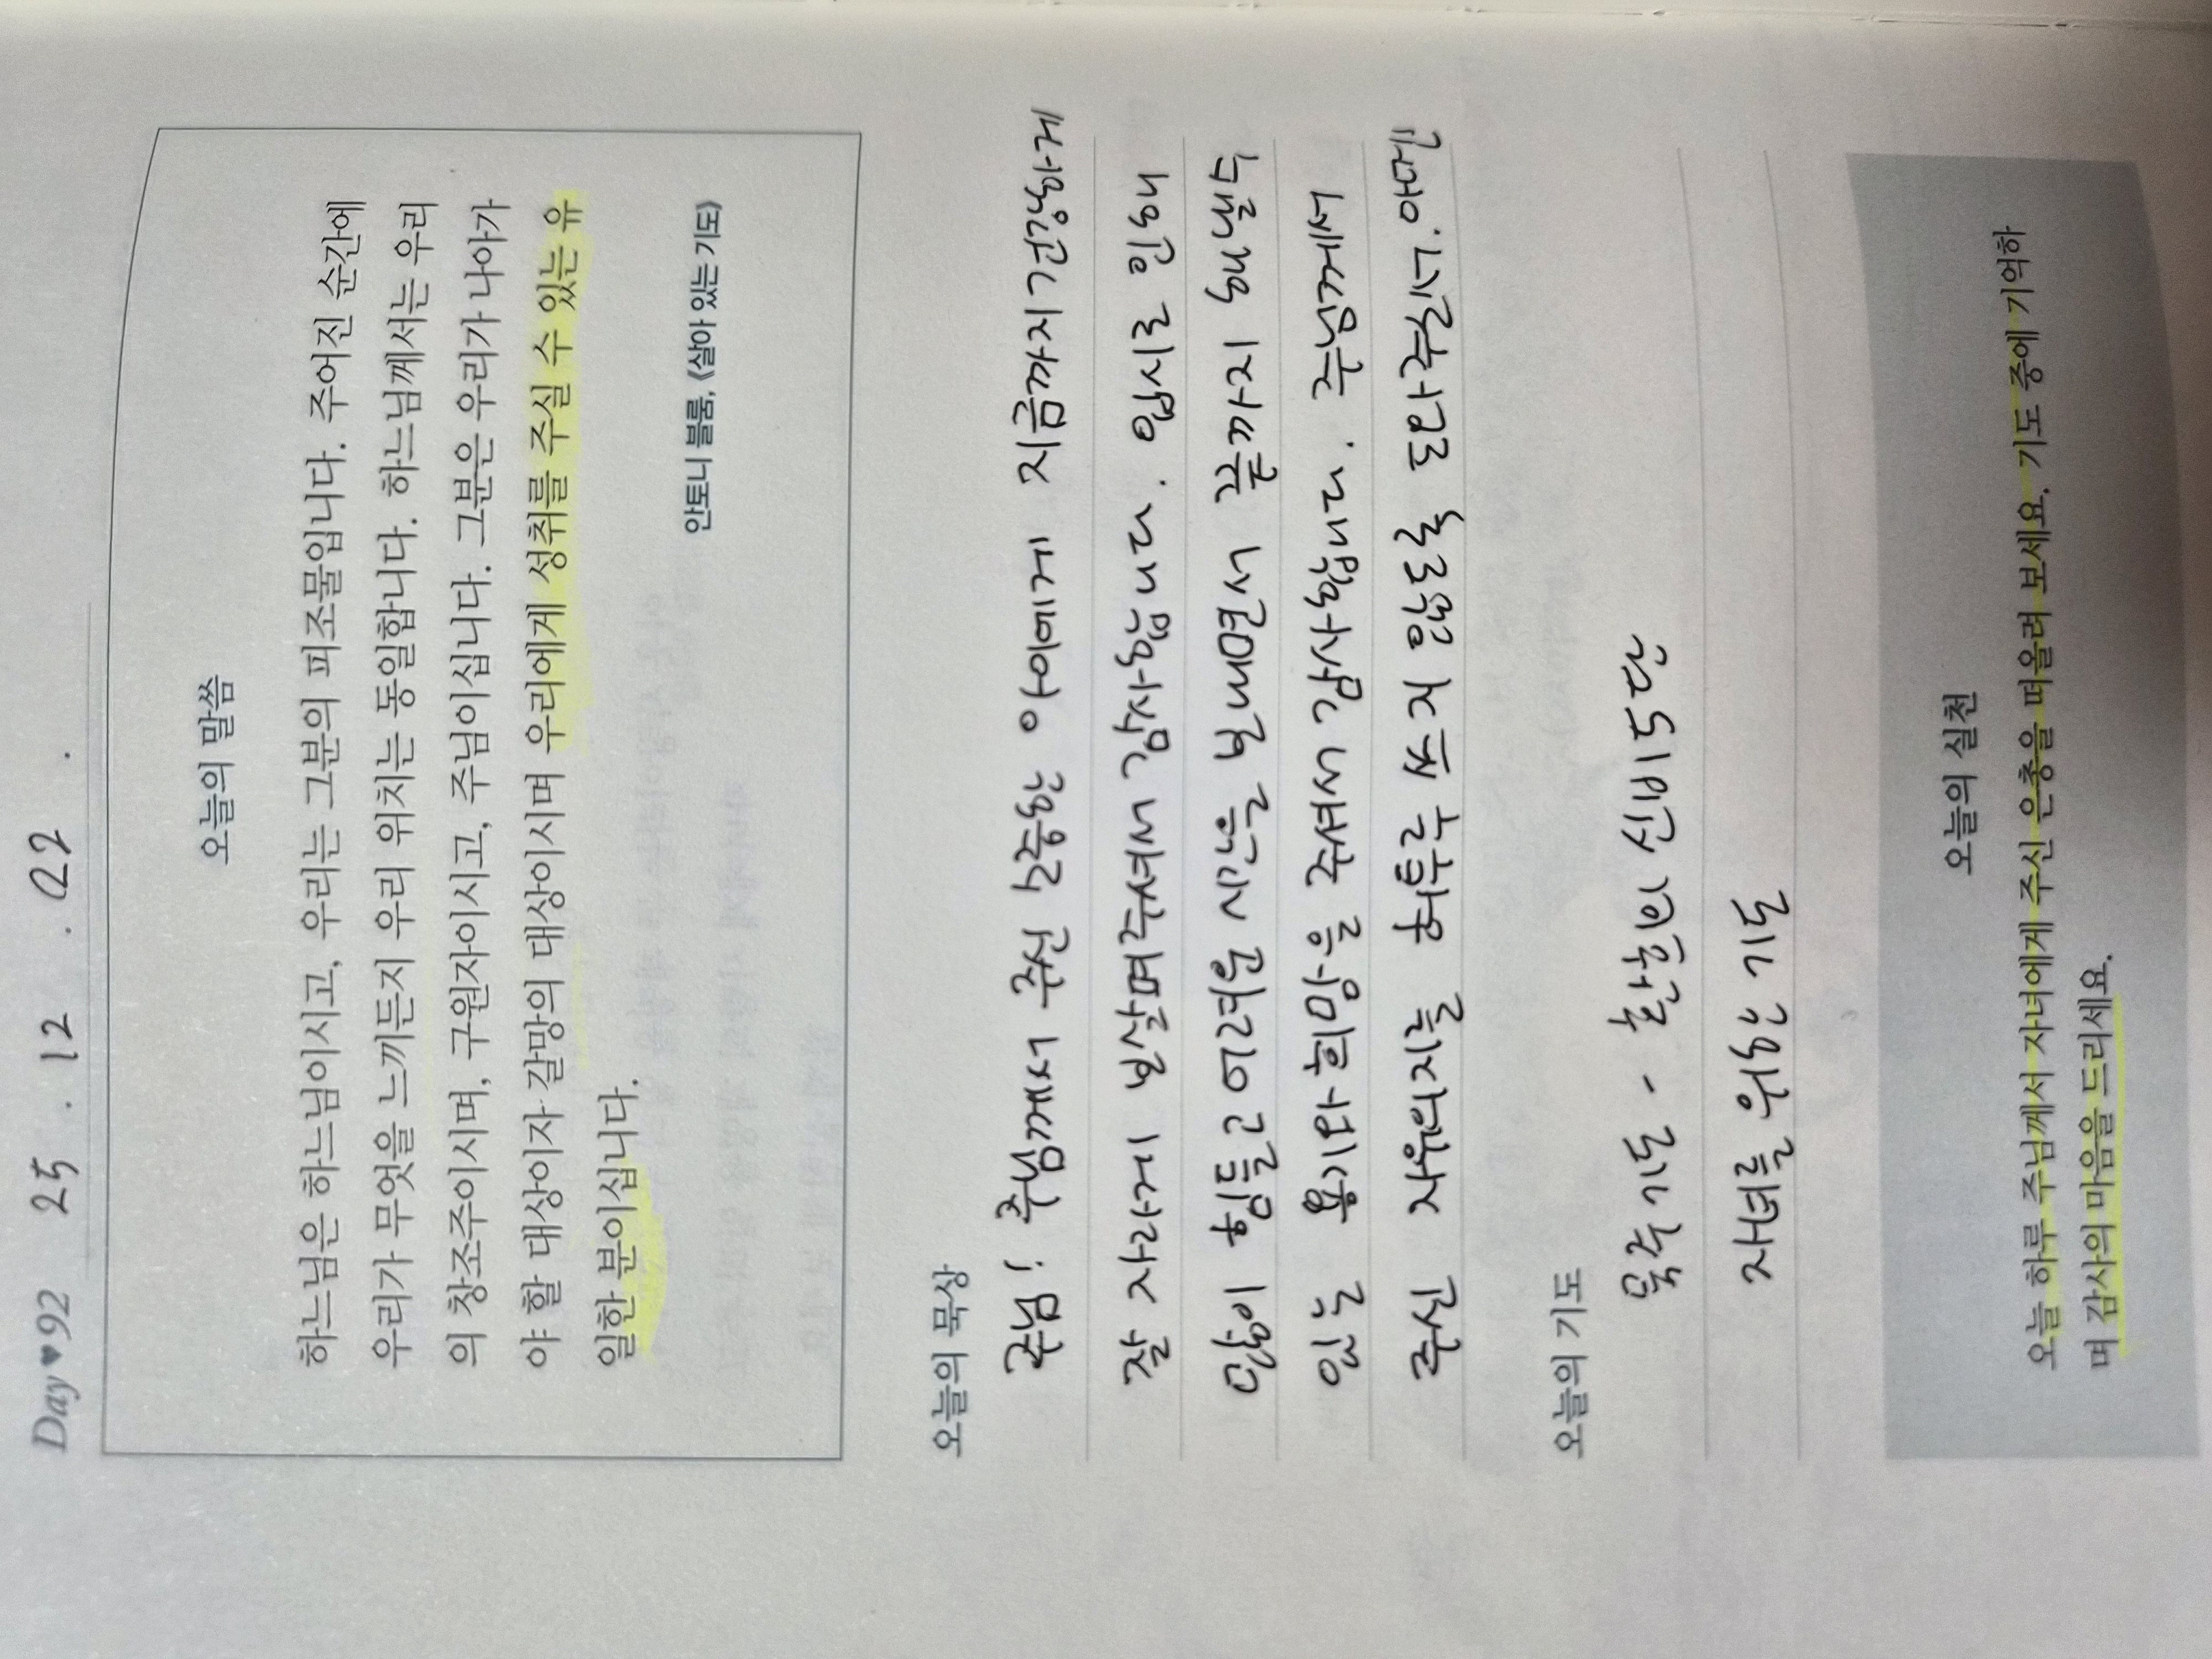 Day♥92 25 . 12 . 02 .
오늘의 말씀
하느님은 하느님이시고, 우리는 그분의 피조물입니다. 주어진 순간에
우리가 무엇을 느끼든지 우리 위치는 동일합니다. 하느님께서는 우리
의 창조주이시며, 구원자이시고, 주님이십니다. 그분은 우리가 나아가
야 할 대상이자 갈망의 대상이시며 우리에게 성취를 주실 수 있는 유
일한 분이십니다.
안토니 블룸, 《살아 있는 기도》
오늘의 묵상
주님! 주님께서 주신 소중한 아이에게 지금까지 건강하게
잘 자라게 보살펴주셔서 감사합니다. 입시로 인해
많이 힘들고 어려운 시간을 보내면서 끝까지 해낼수
있는 용기와 희망을 주셔서 감사합니다. 주님께서
주신 자유의지를 허투루 쓰지 않도록 도와주실거니. 아멘
오늘의 기도
묵주기도 - 환희의 신비 5단
자녀를 위한 기도
오늘의 실천
오늘 하루 주님께서 자녀에게 주신 은총을 떠올려 보세요. 기도 중에 기억하
며 감사의 마음을 드리세요.